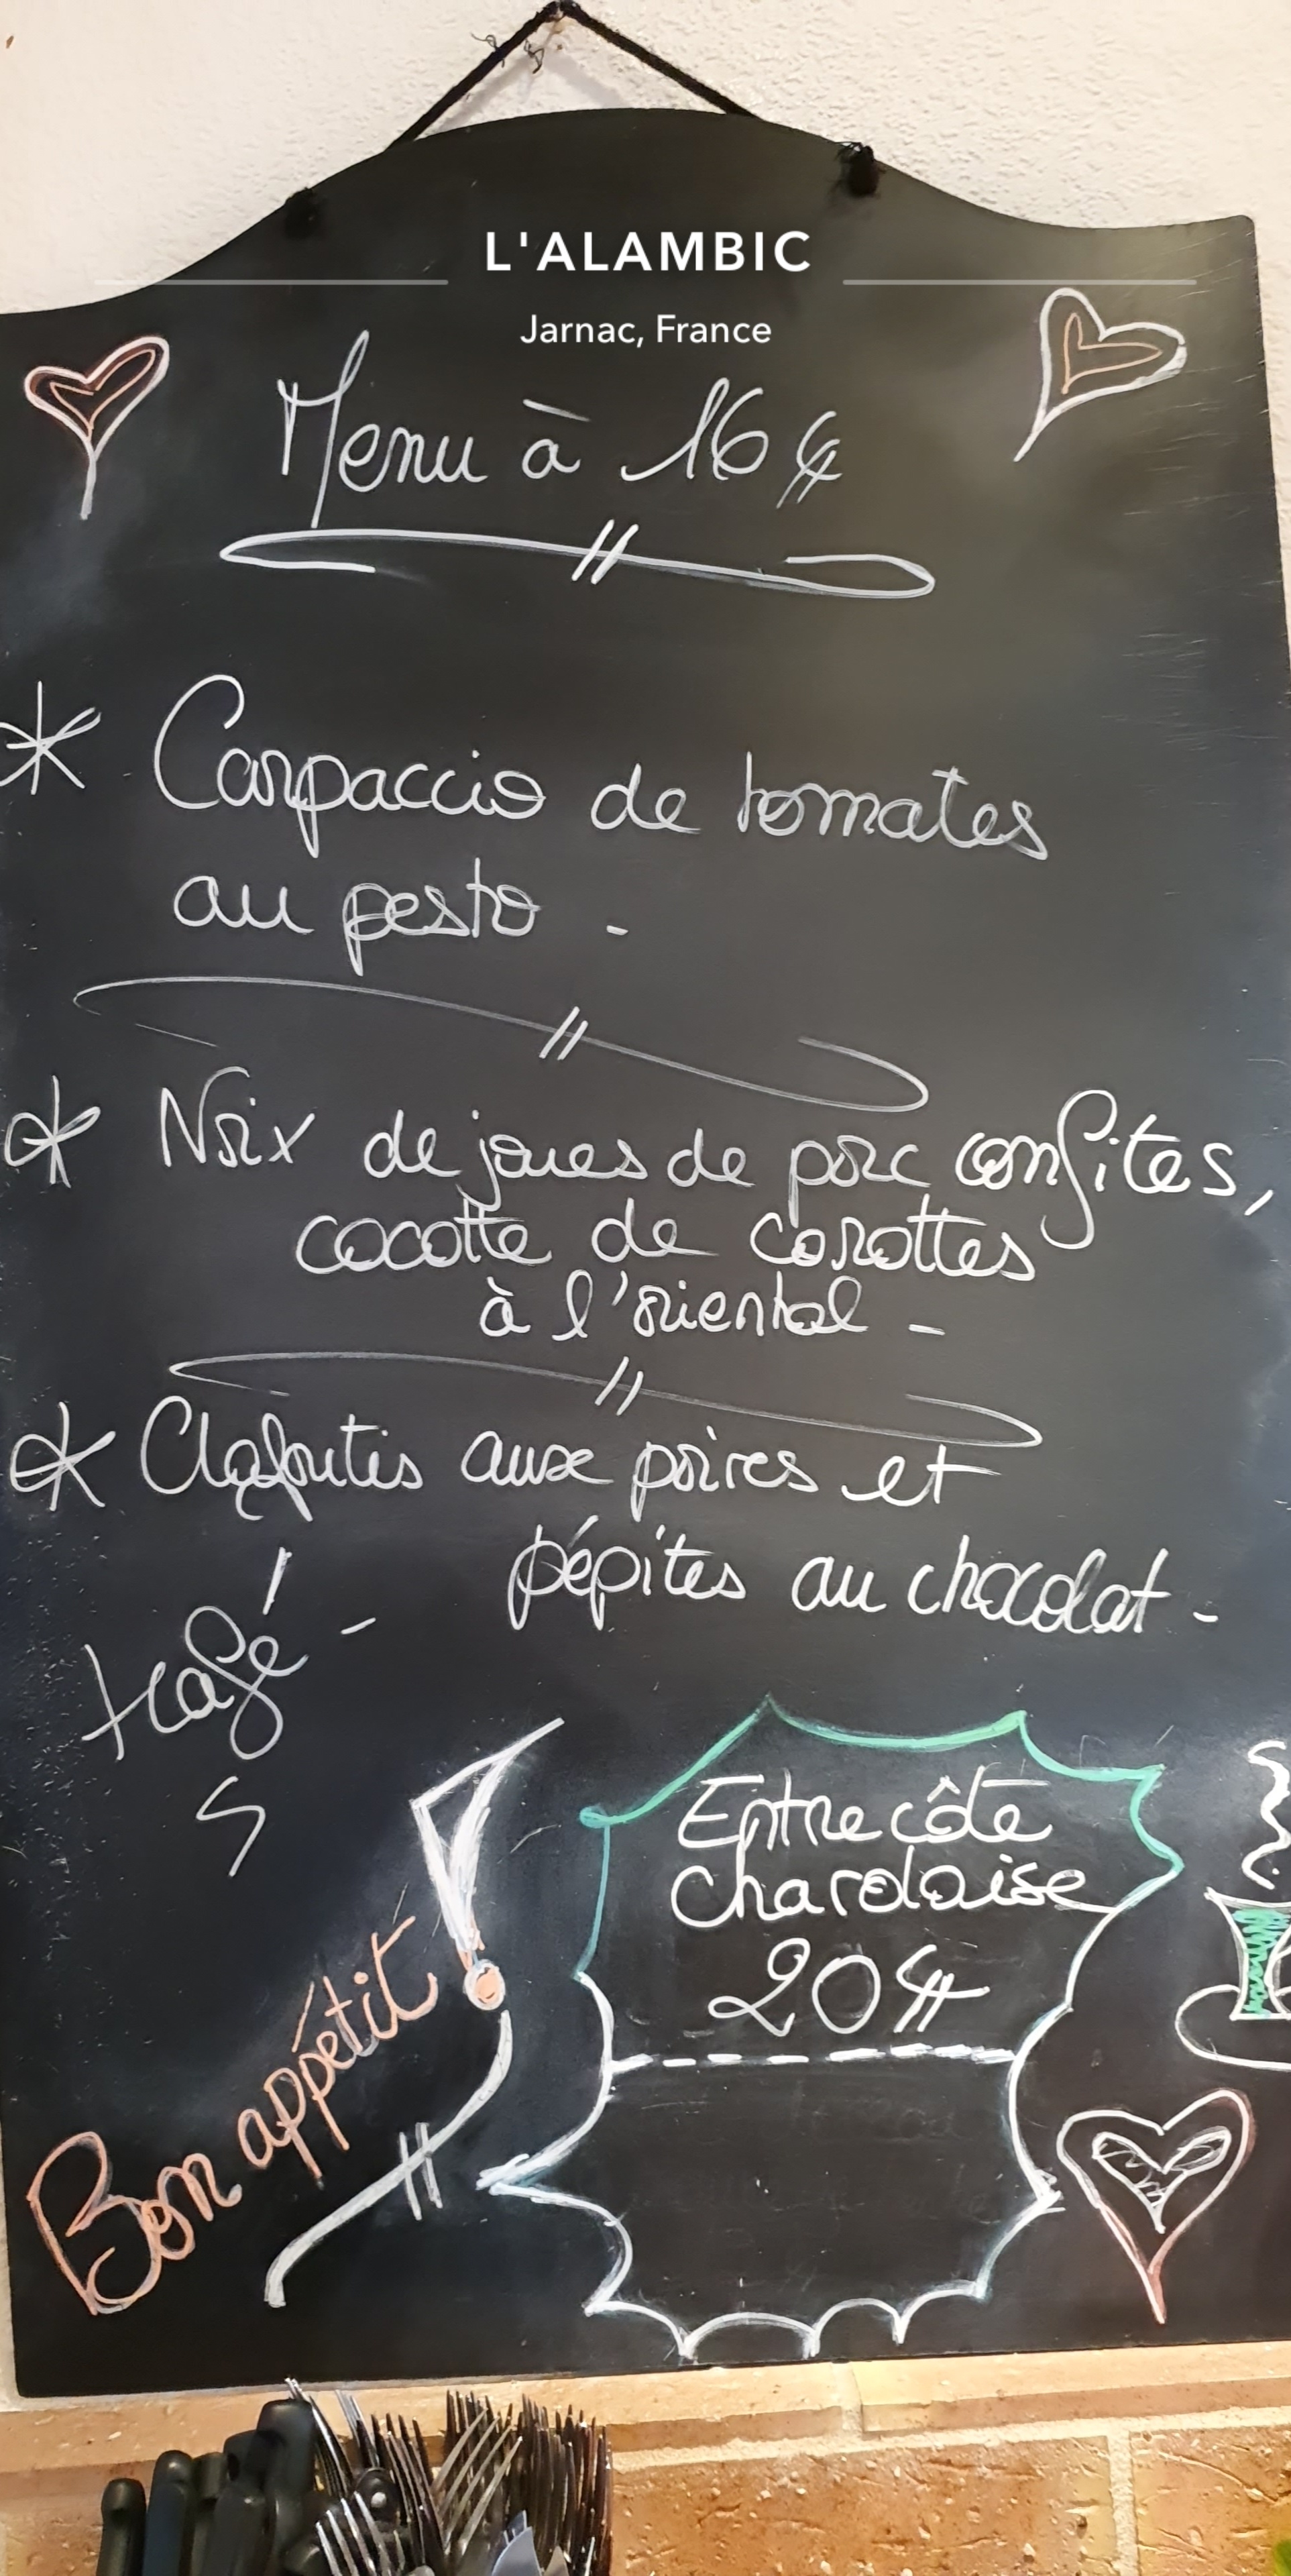 L'ALAMBIC
Jarnac, France
Menu à 16 €
* Carpaccio de tomates
au pesto -
* Noix de joues de porc confites,
cocotte de carottes
à l'oriental -
* Clafoutis aux poires et
pépites au chocolat -
+ café -
Entrecôte
charolaise
20 €
Bon appétit